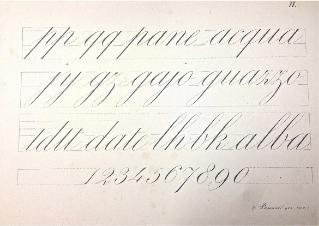 11.
pp qq pane acqua
jy gz gajo guazzo
tdtt date lh bk alba
1234567890